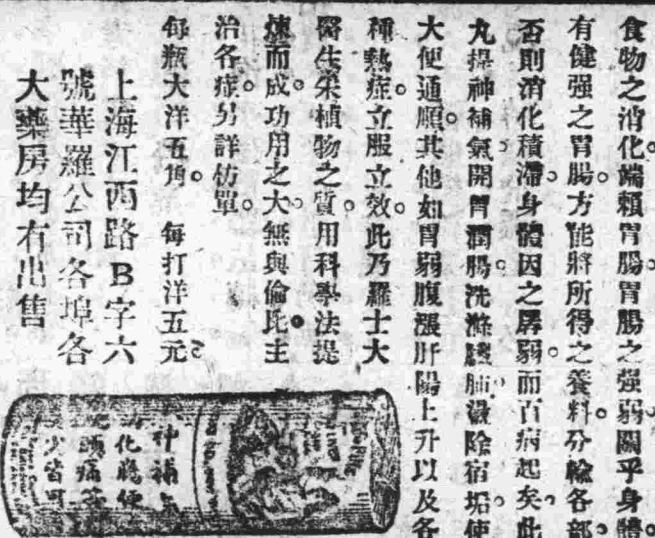 食物之消化端賴胃腸。胃腸之强弱關乎身體。
有健强之胃腸。方能將所得之養料。分輸各部。
否則消化積滯。身體因之孱弱。而百病起矣。此
丸提神補氣開胃潤腸。洗滌臟肺。盪除宿垢。使
大便通順。其他如胃弱腹漲肝陽上升以及各
種熱症。立服立效。此乃羅士大
醫生采植物之質。用科學法提
煉而成。功用之大。無與倫比。主
治各症。另詳仿單。
每瓶大洋五角。 每打洋五元
上海江西路B字六
號華羅公司各埠各
大藥房均有出售
神補氣
化腸便
頭痛
少皆可